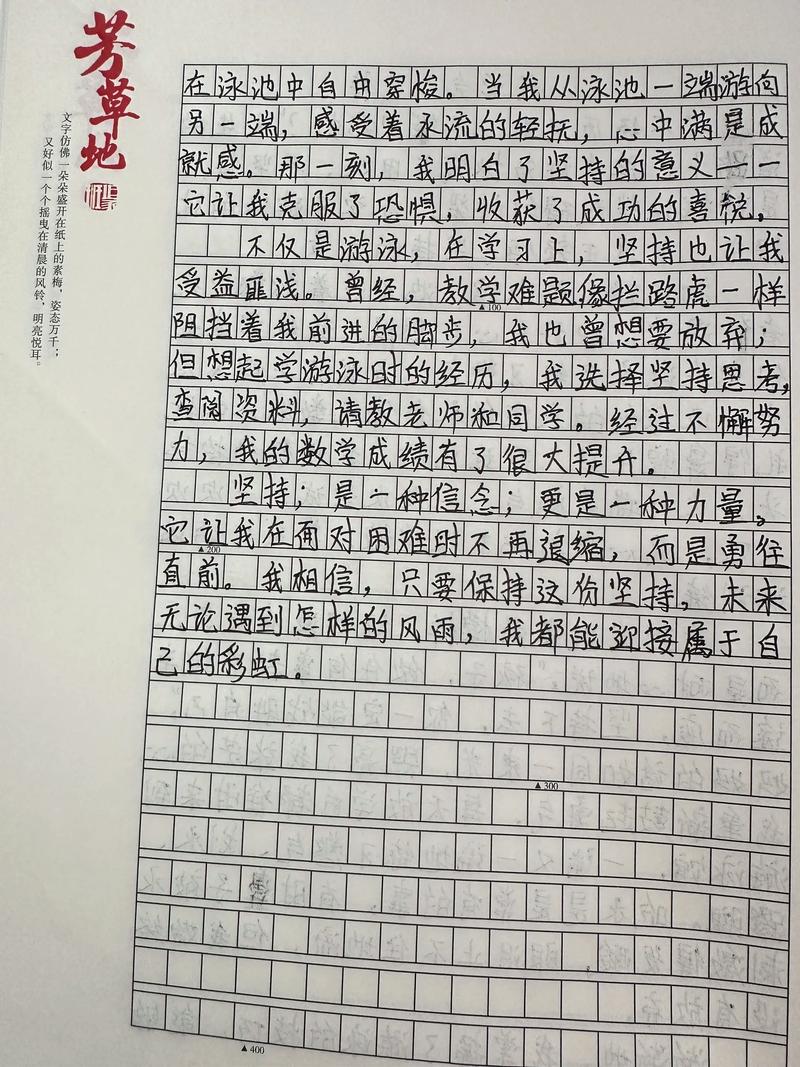 芳草地
文字仿佛一朵朵盛开在纸上的素梅，姿态万千；
又好似一个个摇曳在清晨的风铃，明亮悦耳。
在泳池中自由穿梭。当我从泳池一端游向
另一端，感受着水流的轻抚，心中满是成
就感。那一刻，我明白了坚持的意义——
它让我克服了恐惧，收获了成功的喜悦。
不仅是游泳，在学习上，坚持也让我
受益匪浅。曾经，教学难题像拦路虎一样
▲100
阻挡着我前进的脚步，我也曾想要放弃；
但想起学游泳时的经历，我选择坚持思考，
查阅资料，请教老师和同学。经过不懈努
力，我的数学成绩有了很大提升。
坚持；是一种信念；更是一种力量。
它让我在面对困难时不再退缩，而是勇往
▲200
直前。我相信，只要保持这份坚持，未来
无论遇到怎样的风雨，我都能迎接属于自
己的彩虹。
▲300
▲400